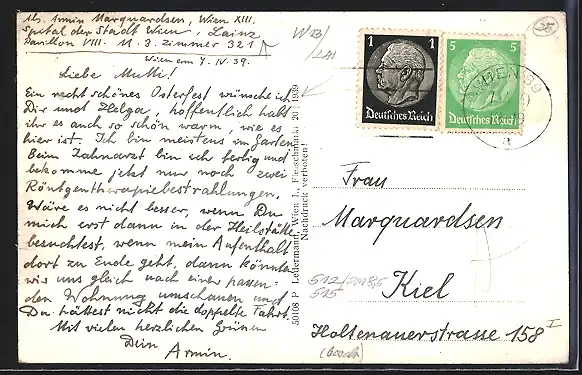 Abs. Armin Marquardsen, Wien XIII.
Spital der Stadt Wien, Lainz
Pavillon VIII. U. 3. Zimmer 321
Wien am 7. IV. 39.
Liebe Mutti!
Ein recht schönes Osterfest wünsche ich
Dir und Helga, hoffentlich habt
ihr es auch so schön warm, wie es
hier ist. Ich bin meistens im Garten.
Beim Zahnarzt bin ich fertig und
bekomme jetzt nur noch zwei
Röntgentherapiebestrahlungen.
Wäre es nicht besser, wenn Du
mich erst dann in der Heilstätte
besuchtest, wenn mein Aufenthalt
dort zu Ende geht, dann könnten
wir uns gleich nach einer passen-
den Wohnung umschauen und
Du hättest nicht die doppelte Fahrt.
Mit vielen herzlichen Grüßen
Dein
Armin.
50108 P Ledermann, Wien I., Fleischmarkt 20 1939
Nachdruck verboten!
W13/
1
Deutsches Reich
5
Deutsches Reich
WIEN
a
Frau
Marquardsen
Kiel
Holtenauerstrasse 158 I
512
515